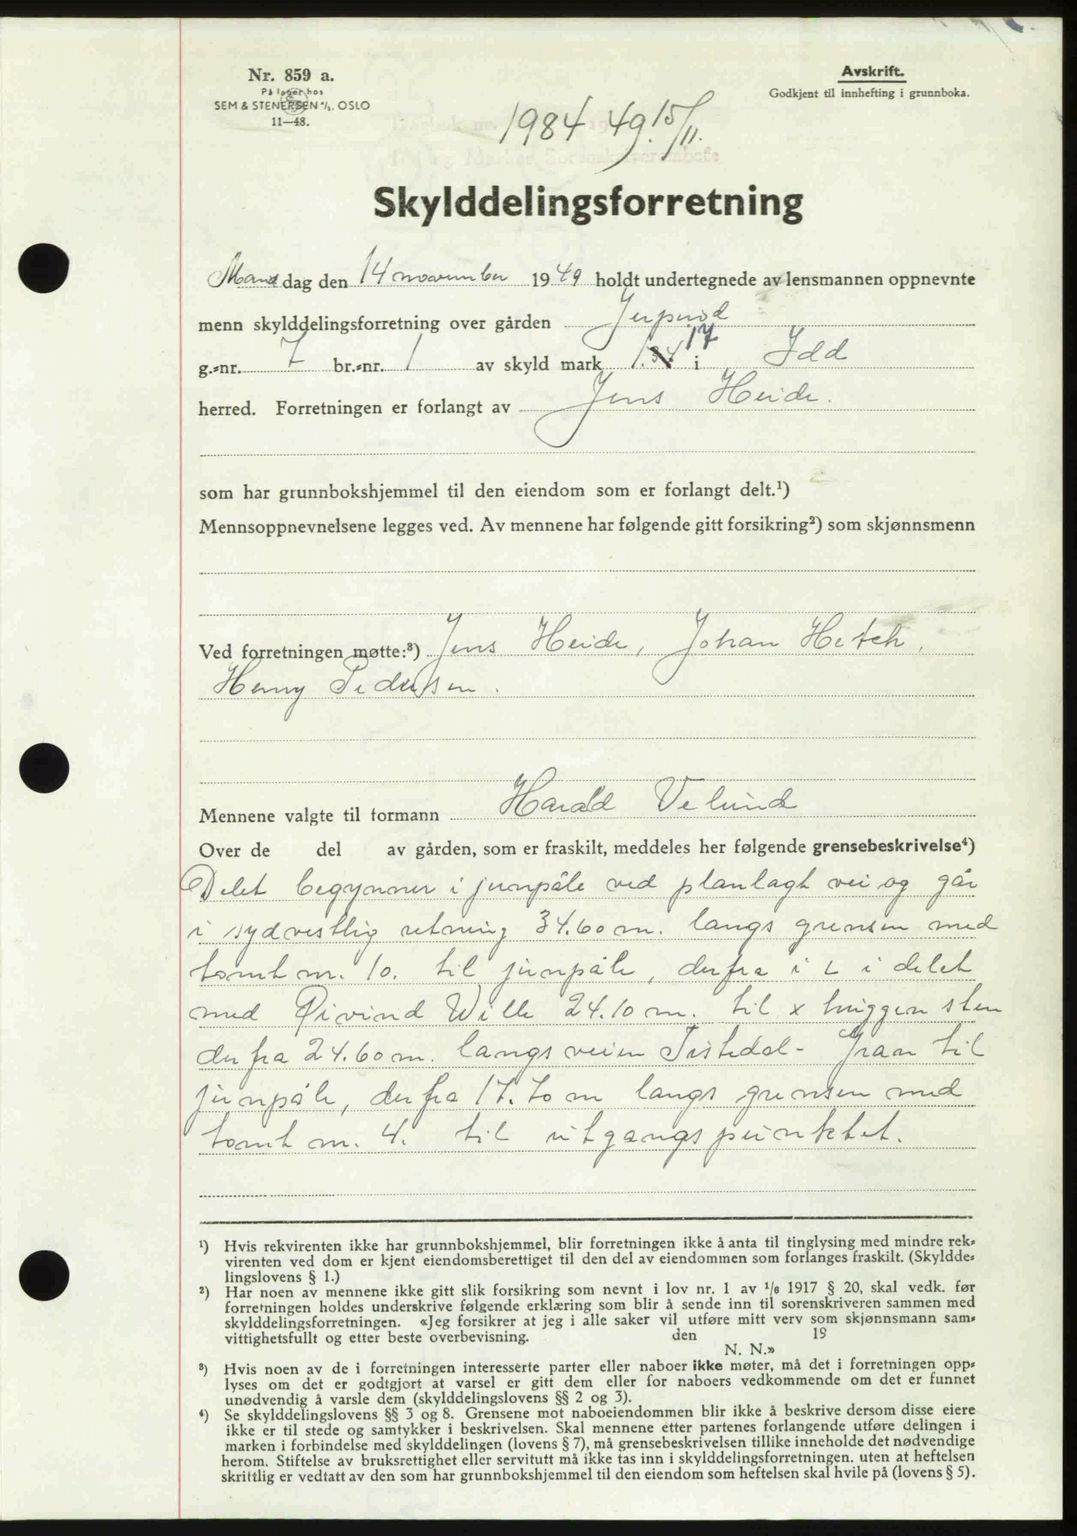 Nr. 859 a.
På lager hos
SEM & STENERSEN A/S. OSLO
11—48.
Avskrift.
Godkjent til innhefting i grunnboka.
1984 49. 15/11.
Skylddelingsforretning
Mandag den 14 november 1949 holdt undertegnede av lensmannen oppnevnte
menn skylddelingsforretning over gården
17
g.-nr. 7 br.-nr. 1 av skyld mark i Idd
herred. Forretningen er forlangt av Jens Heide.
som har grunnbokshjemmel til den eiendom som er forlangt delt.¹)
Mennsoppnevnelsene legges ved. Av mennene har følgende gitt forsikring²) som skjønnsmenn
Ved forretningen møtte:³) Jens Heide, Johan
Henry Pedersen.
Mennene valgte til formann Harald Velund
Over de del av gården, som er fraskilt, meddeles her følgende grensebeskrivelse⁴)
Delet begynner i jernpåle ved planlagt vei og går
i sydvestlig retning 34.60 m. langs grensen med
tomt nr. 10. til jernpåle, derfra i L i delet
med Øivind Wille 24.10 m. til x huggen sten
derfra 24.60 m. langs veien Tistedal - til
jernpåle, derfra 17.70 m langs grensen med
tomt nr. 4. til utgangspunktet.
¹) Hvis rekvirenten ikke har grunnbokshjemmel, blir forretningen ikke å anta til tinglysing med mindre rek-
virenten ved dom er kjent eiendomsberettiget til den del av eiendommen som forlanges fraskilt. (Skyldde-
lingslovens § 1.)
²) Har noen av mennene ikke gitt slik forsikring som nevnt i lov nr. 1 av 1/6 1917 § 20, skal vedk. før
forretningen holdes underskrive følgende erklæring som blir å sende inn til sorenskriveren sammen med
skylddelingsforretningen. «Jeg forsikrer at jeg i alle saker vil utføre mitt verv som skjønnsmann sam-
vittighetsfullt og etter beste overbevisning. den 19
N. N.»
³) Hvis noen av de i forretningen interesserte parter eller naboer ikke møter, må det i forretningen opp-
lyses om det er godtgjort at varsel er gitt dem eller for naboers vedkommende om det er funnet
unødvendig å varsle dem (skylddelingslovens §§ 2 og 3).
⁴) Se skylddelingslovens §§ 3 og 8. Grensene mot naboeiendommen blir ikke å beskrive dersom disse eiere
ikke er til stede og samtykker i beskrivelsen. Skal mennene etter partenes forlangende utføre delingen i
marken i forbindelse med skylddelingen (lovens § 7), må grensebeskrivelsen tillike inneholde det nødvendige
herom. Stiftelse av bruksrettighet eller servitutt må ikke tas inn i skylddelingsforretningen. uten at heftelsen
skrittlig er vedtatt av den som har grunnbokshjemmel til den eiendom som heftelsen skal hvile på (lovens § 5).